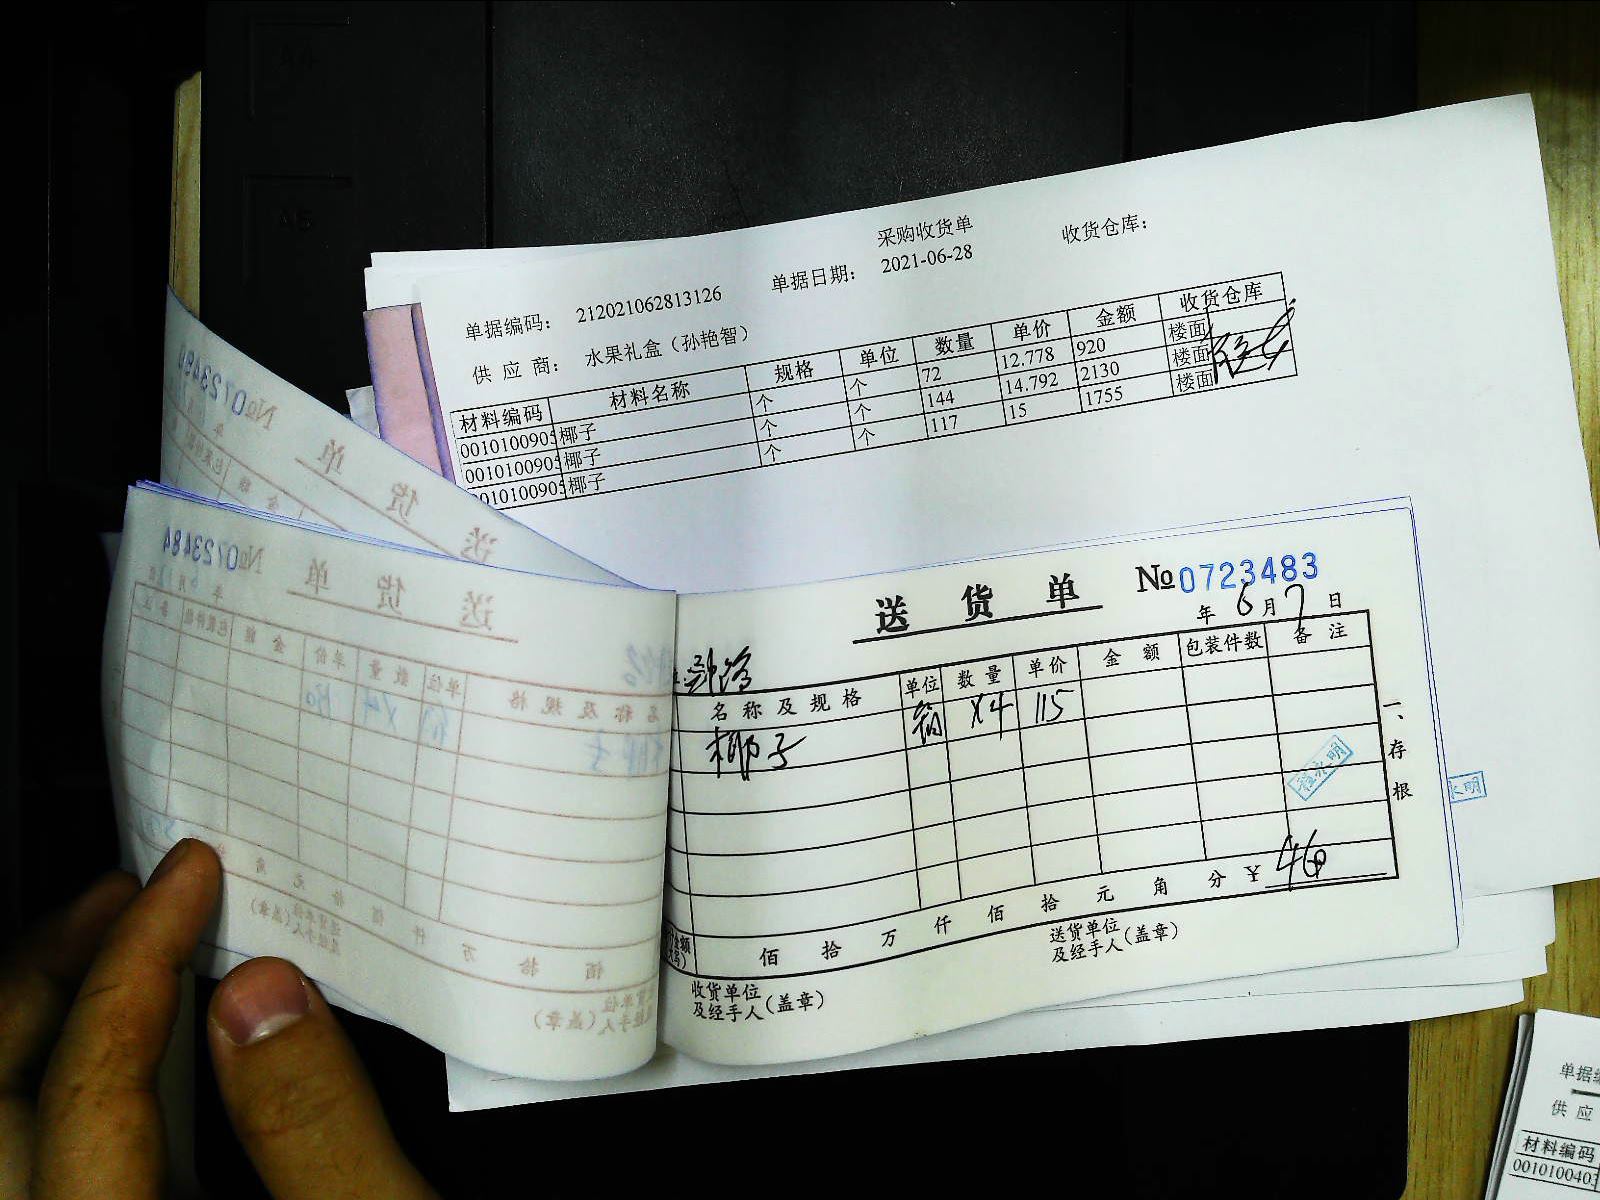 采购收货单
单据编码： 212021062813126 单据日期： 2021-06-28 收货仓库：
供 应 商： 水果礼盒（孙艳智）
材料编码 材料名称 规格 单位 数量 单价 金额 收货仓库
0010100905 椰子 个 个 72 12.778 920 楼面
0010100905 椰子 个 个 144 14.792 2130 楼面
0010100905 椰子 个 个 117 15 1755 楼面
送 货 单 №0723483
年 6 月 7 日
名 称 及 规 格 单位 数 量 单 价 金 额 包装件数 备 注
椰子 箱 X4 115
程永明
永明
一、存根
佰 拾 万 仟 佰 拾 元 角 分 ￥ 460
收货单位及经手人(盖章)
送货单位及经手人(盖章)
№0723484
送 货 单
名 称 及 规 格 单位 数 量 单 价 金 额 包装件数 备 注
X4
佰 拾 万 仟 佰 拾 元 角
送 货 单
单据编
供 应
材料编码
001010040